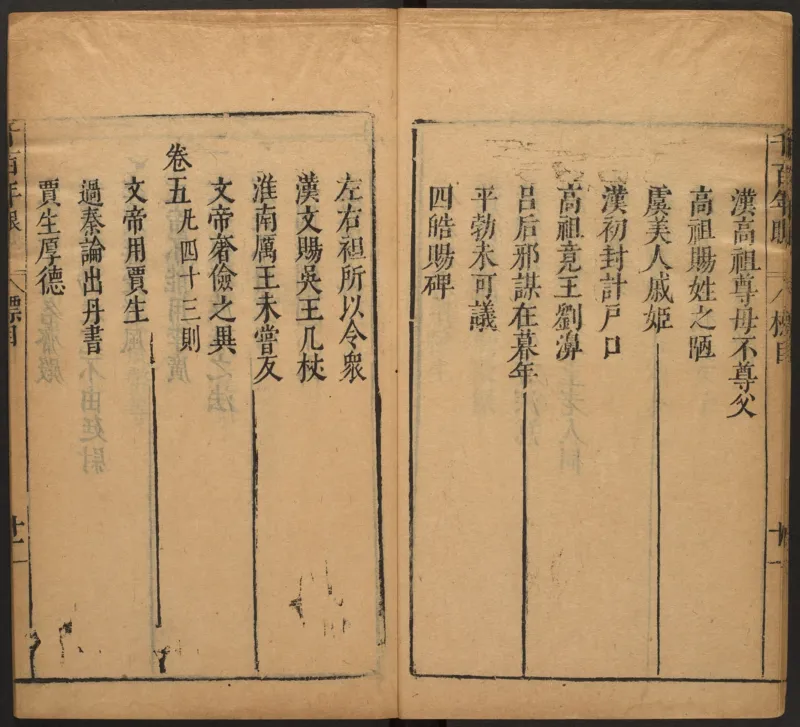 漢高祖尊母不尊父
高祖賜姓之陋
虞美人戚姬
漢初封計戶口
高祖竟王劉濞
呂后邪謀在暮年
平勃未可議
四皓賜碑
左右袒所以令衆
漢文賜吳王几杖
淮南厲王未嘗反
文帝奢儉之異
卷五 凡四十三則
文帝用賈生
過秦論出丹書
賈生厚德
千百年眼
標目
十一